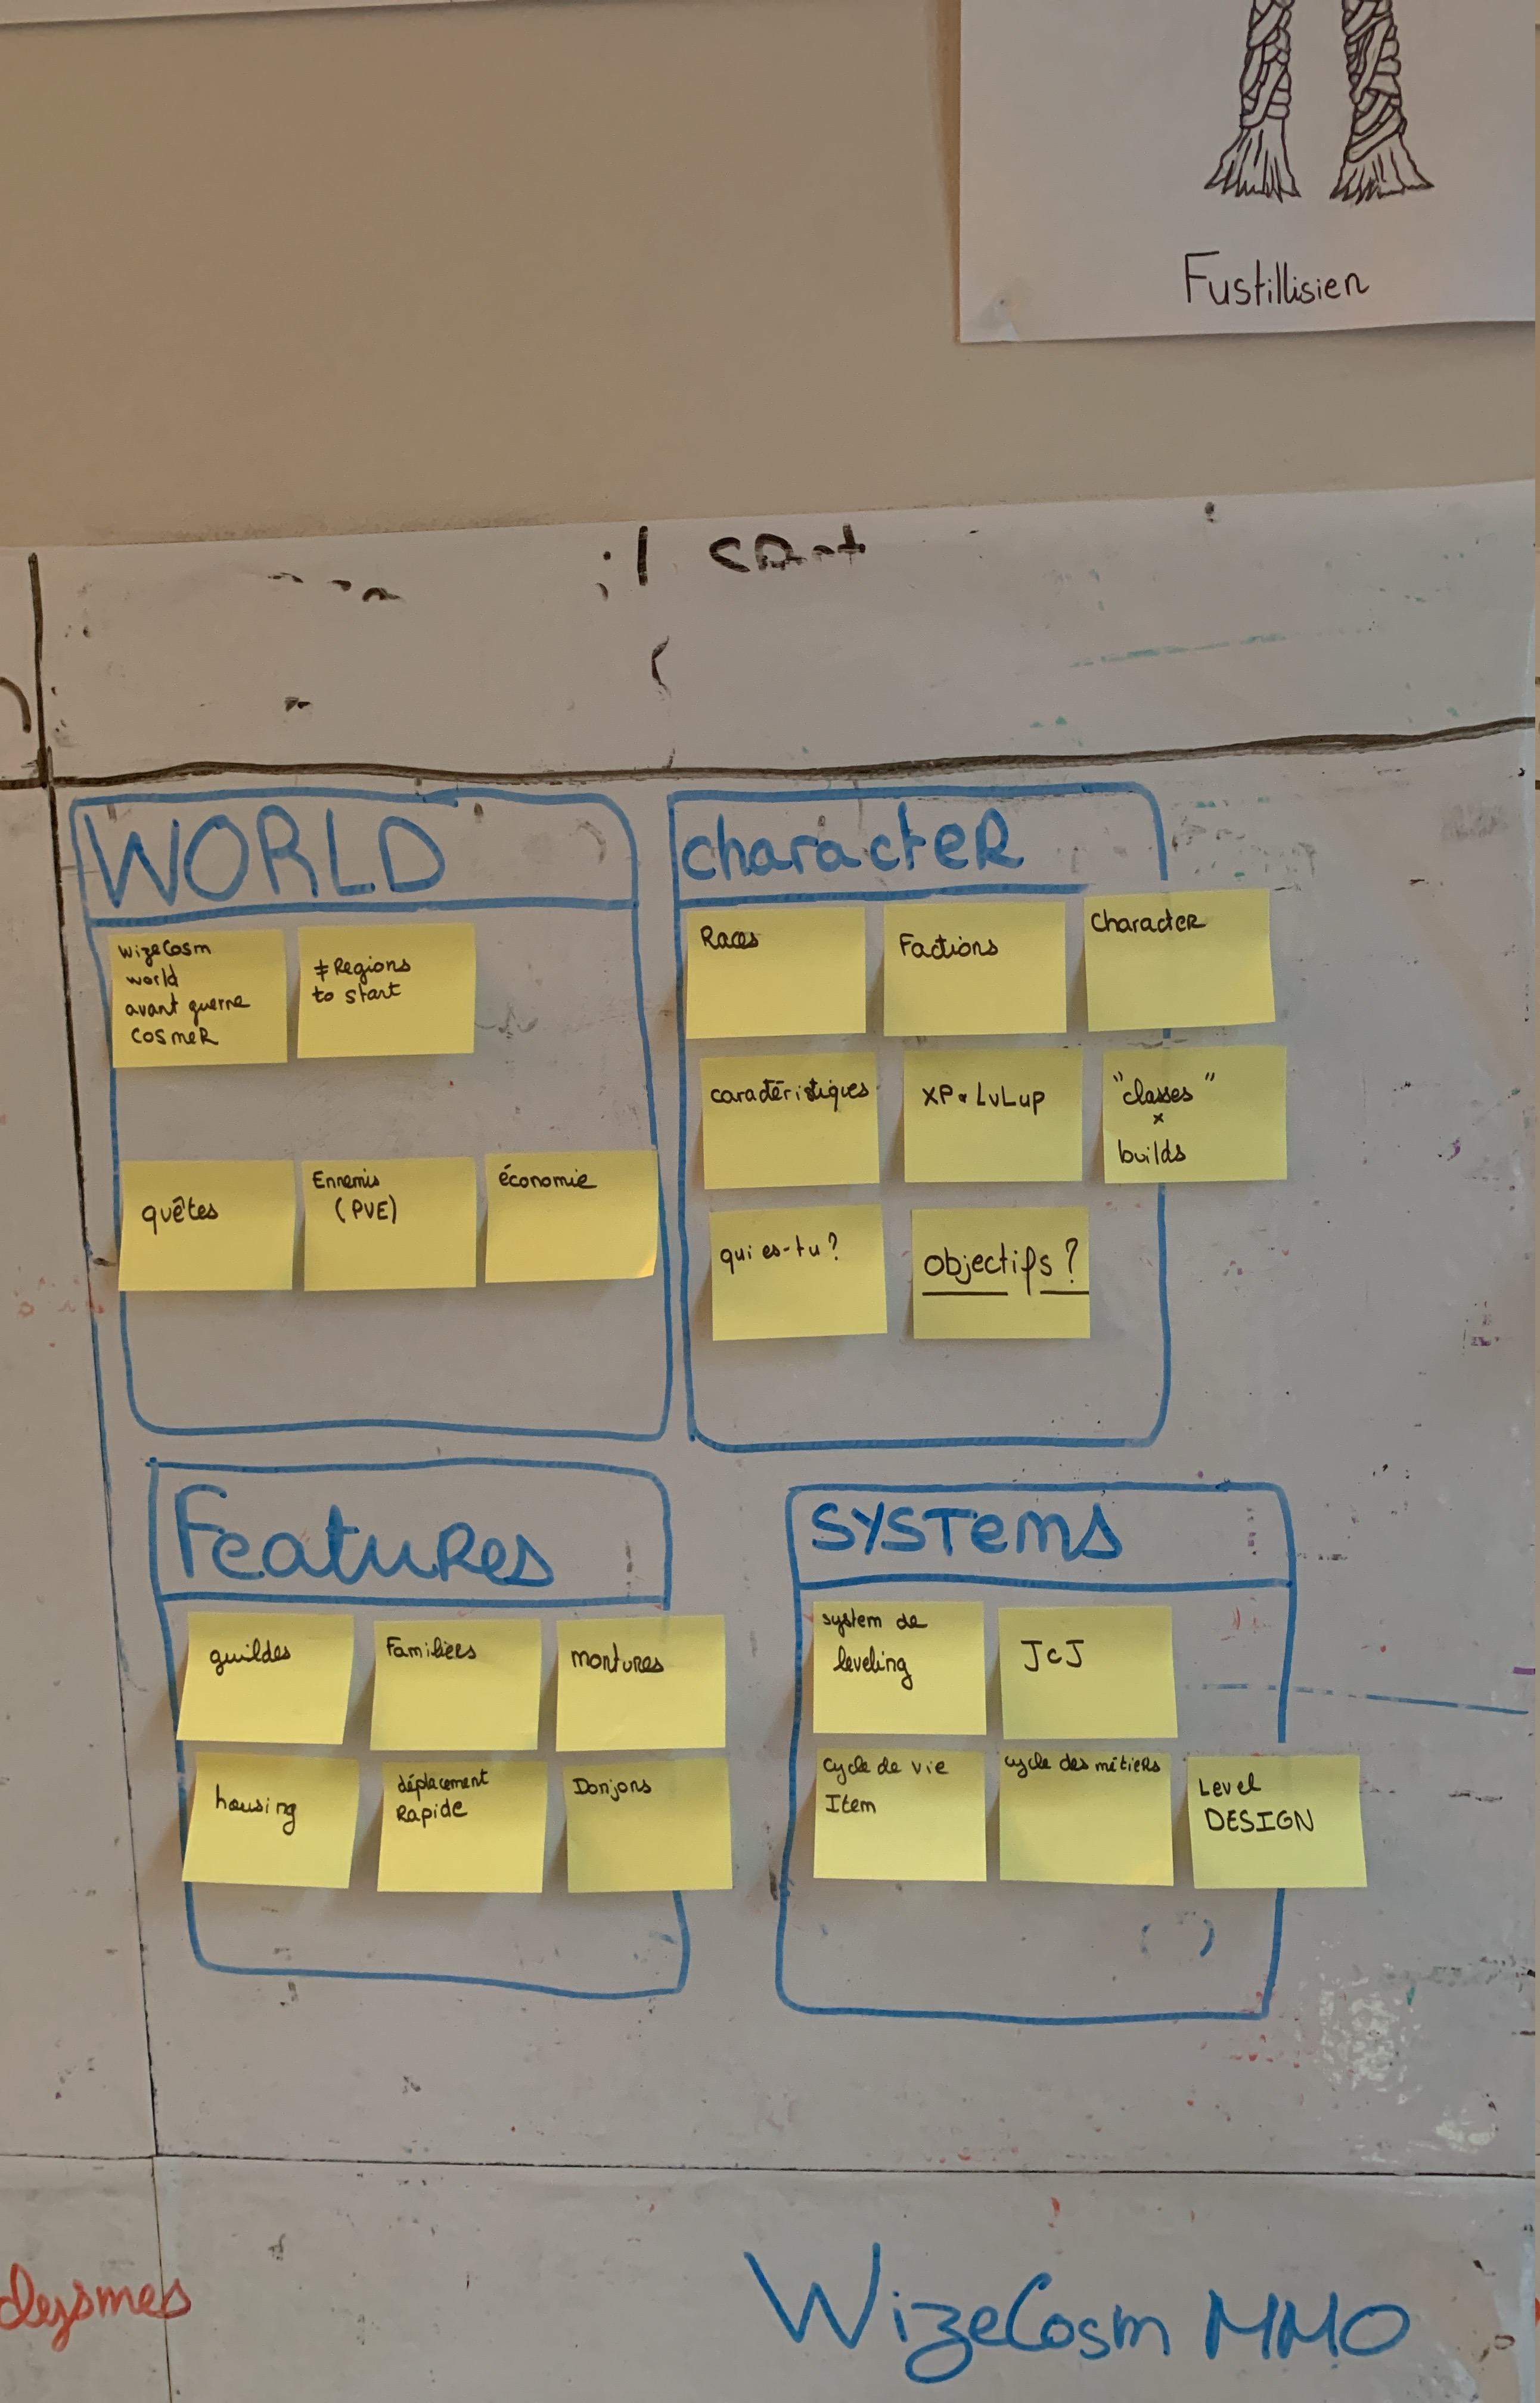 Fustillisien
WORLD
wizeCosm
world
avant guerre
cosmeR
≠ Regions
to start
quêtes
Ennemis
(PVE)
économie
characteR
Races
Factions
CharacteR
caractéristiques
XP & LvLup
"classes"
x
builds
qui es-tu?
objectifs?
FeatuRes
guildes
Familiers
montures
housing
déplacement
Rapide
Donjons
SYSTems
system de
leveling
JcJ
Cycle de vie
Item
cycle des métiers
Level
DESIGN
WizeCosm MMO